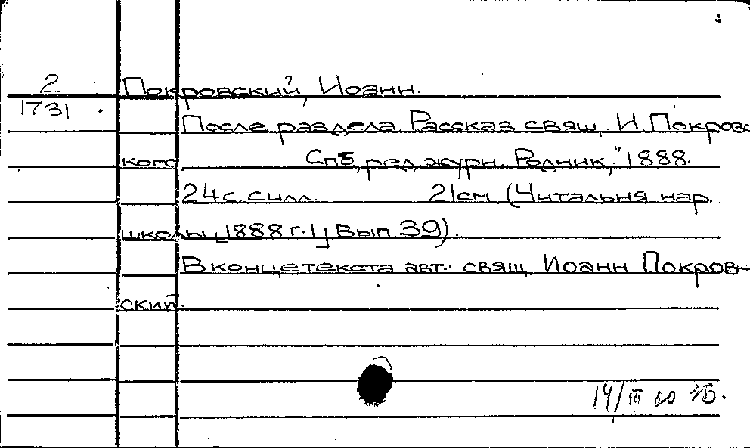 2
1731
Покровский, Иоанн.
После раздела. Рассказ свящ. И. Покровс
кого СПб, ред. журн. "Родник," 1888.
24 с. с илл. 21 см (Читальня нар.
школы, 1888 г. Вып 39).
В конце текста авт.: свящ. Иоанн Покров-
ский.
14/III 60